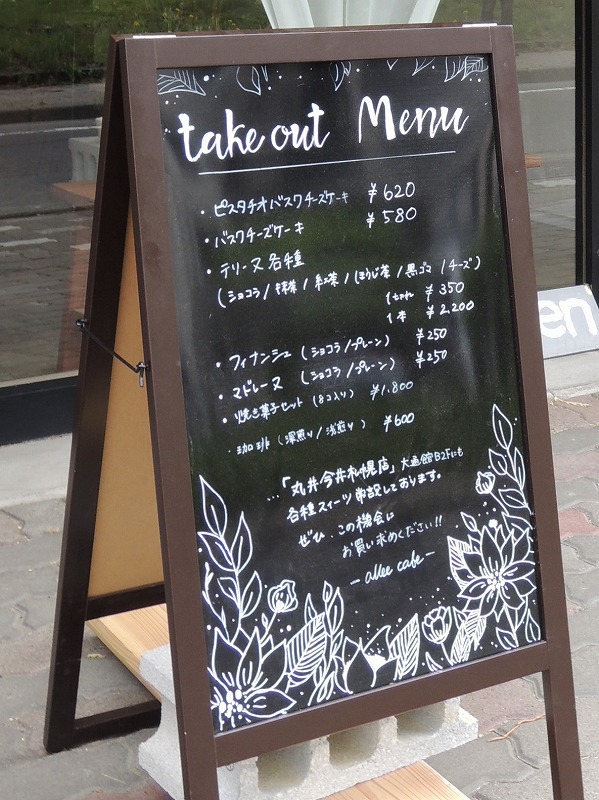 take out Menu
・ピスタチオバスクチーズケーキ ¥620
・バスクチーズケーキ ¥580
・テリーヌ各種
(ショコラ/抹茶/紅茶/ほうじ茶/黒ゴマ/チーズ)
1ちゃれ ¥350
1本 ¥2,200
・フィナンシェ(ショコラ/プレーン) ¥250
・マドレーヌ(ショコラ/プレーン) ¥250
・焼き菓子セット(8コ入り) ¥1,800
・珈琲(深煎り/浅煎り) ¥600
…「丸井今井札幌店」大通館B2Fにも
各種スイーツ常設しております。
ぜひ、この機会に
お買い求めください!!
- allee cafe -
en